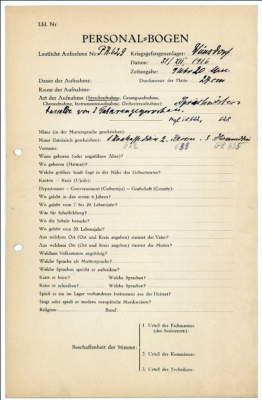 Lfd. Nr
PERSONAL-BOGEN
Lautliche Aufnahme Nr: PK 629 Kriegsgefangenenlager: Wünsdorf
Datum: 31/XII. 1916
Zeitangabe: 9 Uhr 20 Min
Dauer der Aufnahme: Durchmesser der Platte:
Raum der Aufnahme:
Art der Aufnahme (Sprechaufnahme, Gesangsaufnahme,
Choraufnahme, Instrumentenaufnahme, Orchesteraufnahme):
von 3 gesprochen
Name (in der Muttersprache geschrieben):
Name (lateinisch geschrieben): 1. 2. 3.
Vorname: 632 633
Wann geboren (oder ungefähres Alter)?
Wo geboren (Heimat)?
Welche größere Stadt liegt in der Nähe des Geburtsortes?
Kanton — Kreis (Ujedz):
Departement — Gouvernement (Gubernija) — Grafschaft (County):
Wo gelebt in den ersten 6 Jahren?
Wo gelebt vom 7. bis 20. Lebensjahr?
Was für Schulbildung?
Wo die Schule besucht?
Wo gelebt vom 20. Lebensjahr?
Aus welchem Ort (Ort und Kreis angeben) stammt der Vater?
Aus welchem Ort (Ort und Kreis angeben) stammt die Mutter?
Welchem Volksstamm angehörig?
Welche Sprache als Muttersprache?
Welche Sprachen spricht er außerdem?
Kann er lesen? Welche Sprachen?
Kann er schreiben? Welche Sprachen?
Spielt er ein im Lager vorhandenes Instrument aus der Heimat?
Singt oder spielt er modern europäische Musikweisen?
Religion: Beruf:
Beschaffenheit der Stimme:
1. Urteil des Fachmannes
(des Assistenten):
2. Urteil des Kommissars:
3. Urteil des Technikers: